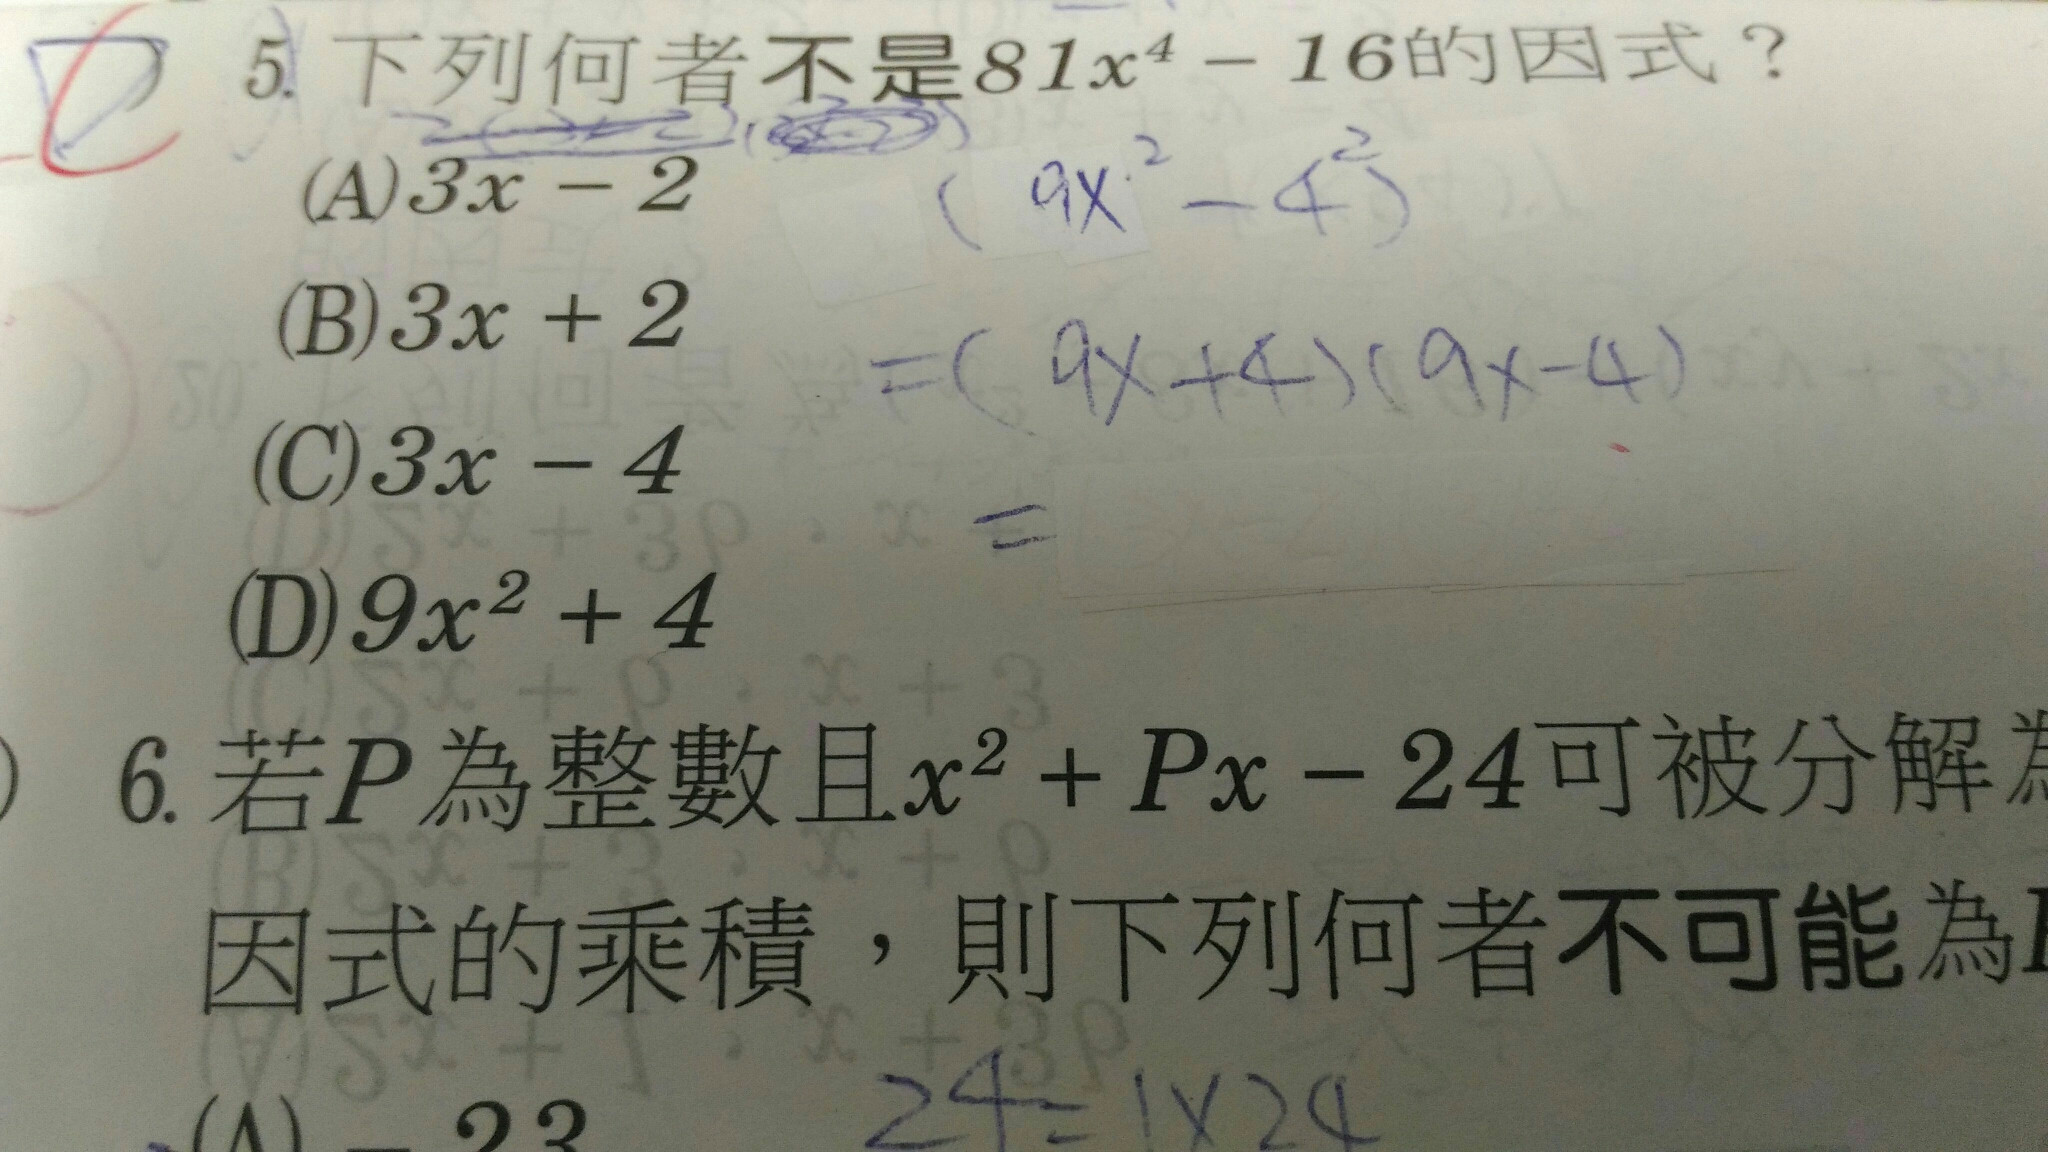 5. 下列何者不是81x⁴ − 16的因式？
(A) 3x − 2
(9x² − 4²)
(B) 3x + 2
=(9x+4)(9x−4)
(C) 3x − 4
=
(D) 9x² + 4
) 6. 若P為整數且x² + Px − 24可被分解為
因式的乘積，則下列何者不可能為
(A) − 23
24=1×24